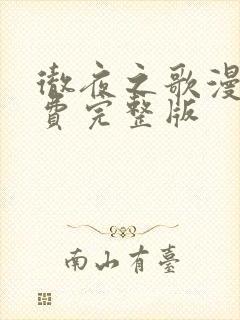 徹夜之歌漫
費完整版
南山有臺